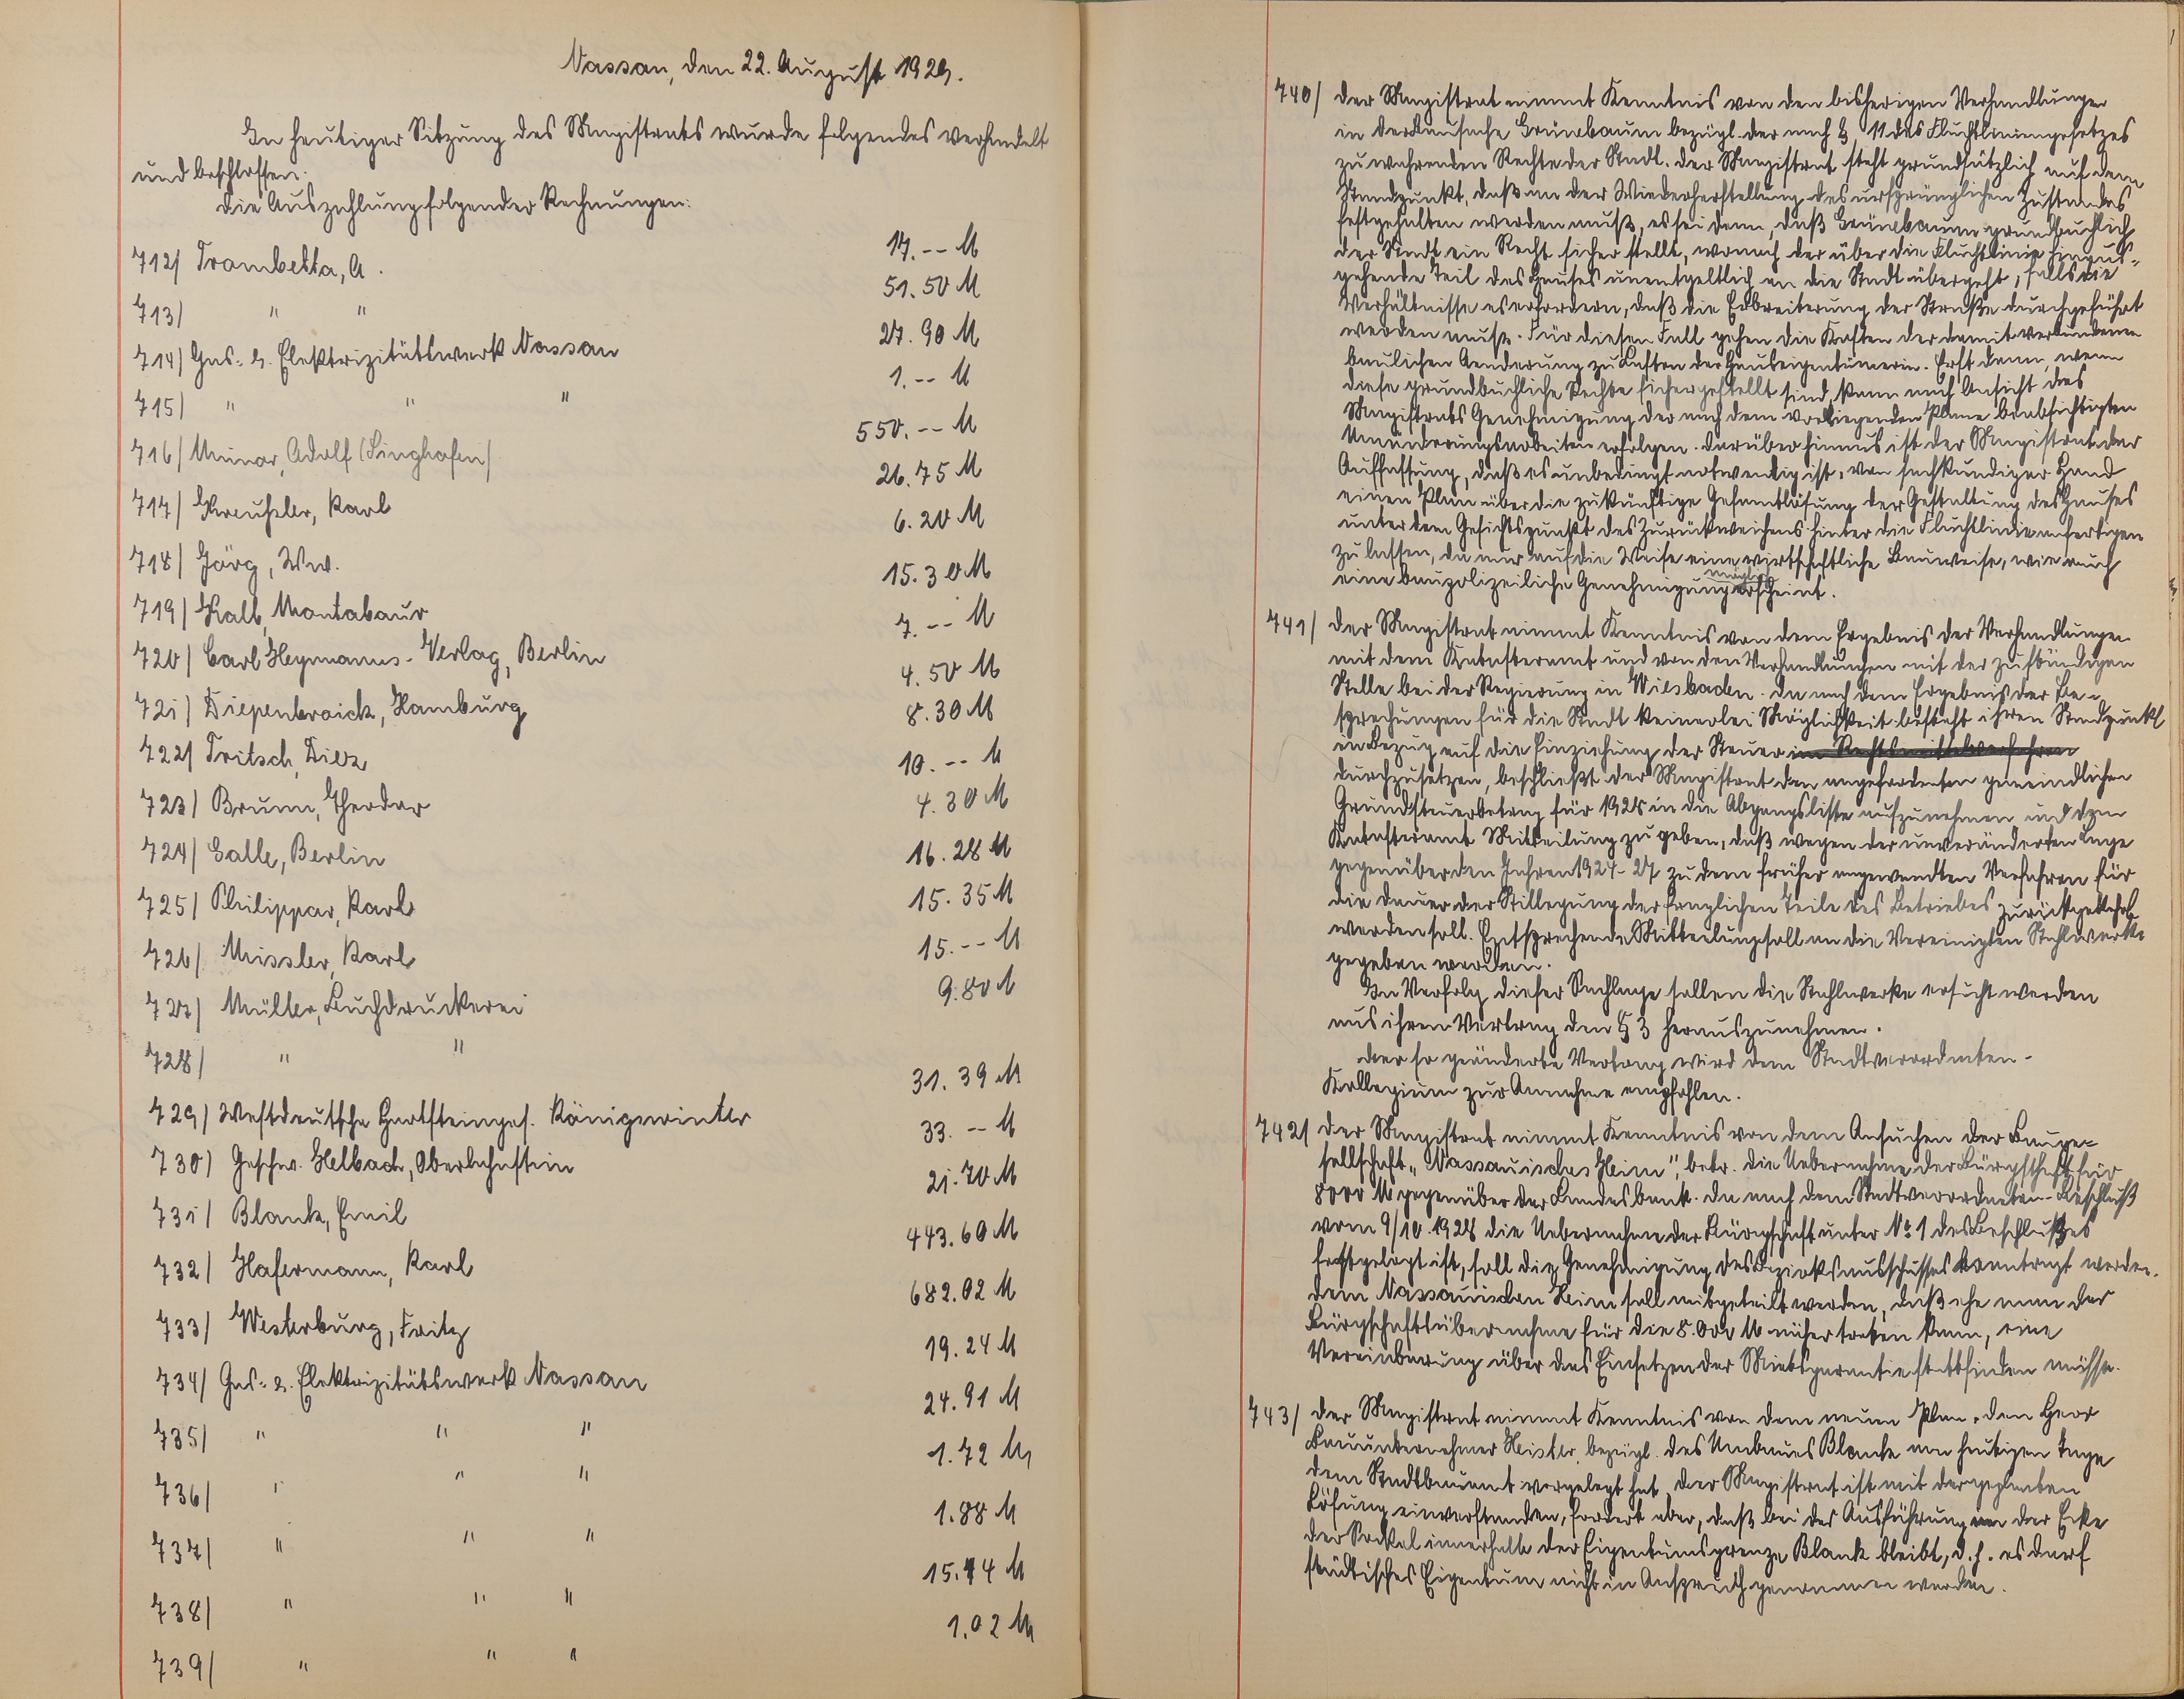 Nassau, den 22. August 1929.
In heutiger Sitzung des Magistrats wurde folgendes verhandelt
und beschlossen.
die Auszahlung folgender Rechnungen:
712/ Trombetta, A. 17.-- M
713/ " " 51.50 M
714/ Gas- u. Elektrizitätswerk Nassau 27.90 M
715/ " " " 1.-- M
716/ Minor, Adolf (Singhofen) 550.-- M
717/ Kreußler, Karl 26.75 M
718/ Jörg, Ww. 6.20 M
719/ Kalb, Montabaur 15.30 M
720/ Carl Heymanns-Verlag, Berlin 7.-- M
721/ Diepenbroick, Hamburg 4.50 M
722/ Fritsch, Diez 8.30 M
723/ Brunn, Theodor 10.-- M
724/ Galle, Berlin 4.30 M
725/ Philippar, Karl 16.28 M
726/ Missler, Karl 15.35 M
727/ Müller, Buchdruckerei 15.-- M
728/ " " 9.80 M
729/ Westdeutsche Hartsteinges. Königswinter 31.39 M
730/ Geschw. Helbach, Oberlahnstein 33.-- M
731/ Blank, Emil 21.70 M
732/ Hafermann, Karl 443.60 M
733/ Westerburg, Fritz 682.02 M
734/ Gas- u. Elektrizitätswerk Nassau 19.24 M
735/ " " " 24.91 M
736/ " " " 1.72 M
737/ " " " 1.88 M
738/ " " " 15.44 M
739/ " " " 1.02 M
740/ der Magistrat nimmt Kenntnis von den bisherigen Verhandlungen
in der Bausache Grünebaum bezügl. der nach § 11 des Fluchtliniengesetzes
zu wahrenden Rechte der Stadt. der Magistrat steht grundsätzlich auf dem
Standpunkt, daß an der Wiederherstellung des ursprünglichen Zustandes
festgehalten werden muß, es sei denn, daß Grünebaum grundbuchlich
der Stadt ein Recht sicher stellt, wonach der über die Fluchtlinie hinaus-
gehende Teil des Hauses unentgeltlich an die Stadt übergeht, falls die
Verhältnisse es erfordern, daß die Erbreiterung der Straße durchgeführt
werden muß. Für diesen Fall gehen die Kosten der damit verbundenen
baulichen Aenderung zu Lasten der Hauseigentümerin. Erst dann, wenn
diese grundbuchliche Rechte sichergestellt sind, kann nach Ansicht des
Magistrats Genehmigung der nach dem vorliegenden Plane beabsichtigten
Umänderungsarbeiten erfolgen. darüber hinaus ist der Magistrat der
Auffassung, daß es unbedingt notwendig ist, von sachkundiger Hand
einen Plan über die zukünftige Gesamtlösung der Gestaltung des Hauses
unter dem Gesichtspunkt des Zurückweichens hinter die Fluchtlinie anfertigen
zu lassen, da nur auf die Weise eine wirtschaftliche Bauweise, wie auch
eine baupolizeiliche Genehmigung möglich erscheint.
741/ der Magistrat nimmt Kenntnis von dem Ergebnis der Verhandlungen
mit dem Katasteramt und von den Verhandlungen mit der zuständigen
Stelle bei der Regierung in Wiesbaden. da nach dem Ergebnis der Be-
sprechungen für die Stadt keinerlei Möglichkeit besteht ihren Standpunkt
in Bezug auf die Einziehung der Steuer im Rechtsmittelverfahren
durchzusetzen, beschließt der Magistrat den angeforderten gemeindlichen
Grundsteuerbetrag für 1928 in die Abgangsliste aufzunehmen und dem
Katasteramt Mitteilung zu geben, daß wegen der unveränderten Lage
gegenüber den Jahren 1924-27 zu dem früher angewandten Verfahren für
die dauer der Stillegung der fraglichen Teile des Betriebes zurückgekehrt
werden soll. Entsprechende Mitteilung soll an die Vereinigten Stahlwerke
gegeben werden.
In Verfolg dieser Sachlage sollen die Stahlwerke ersucht werden
aus ihrem Vertrag den § 3 herauszunehmen.
der so geänderte Vertrag wird dem Stadtverordneten-
Kollegium zur Annahme empfohlen.
742/ der Magistrat nimmt Kenntnis von dem Ansuchen der Bauge-
sellschaft "Nassauisches Heim", betr. die Uebernahme der Bürgschaft für
8000 M gegenüber der Landesbank. da nach dem Stadtverordneten-Beschluß
vom 9/10.1928 die Uebernahme der Bürgschaft unter No 1 des Beschlußes
festgelegt ist, soll die Genehmigung des Bezirksausschusses beantragt werden.
dem Nassauischen Heim soll mitgeteilt werden, daß ehe man der
Bürgschaftsübernahme für die 8.000 M näher treten kann, eine
Vereinbarung über das Einsetzen der Mietsgarantie stattfinden müsse.
743/ der Magistrat nimmt Kenntnis von dem neuen Plan, den Herr
Bauunternehmer Heister bezügl. des Umbaues Blank am heutigen Tage
dem Stadtbauamt vorgelegt hat. der Magistrat ist mit der geplanten
Lösung einverstanden, fordert aber, daß bei der Ausführung an der Ecke
der Sockel innerhalb der Eigentumsgrenze Blank bleibt, d.h. es darf
städtisches Eigentum nicht in Anspruch genommen werden.